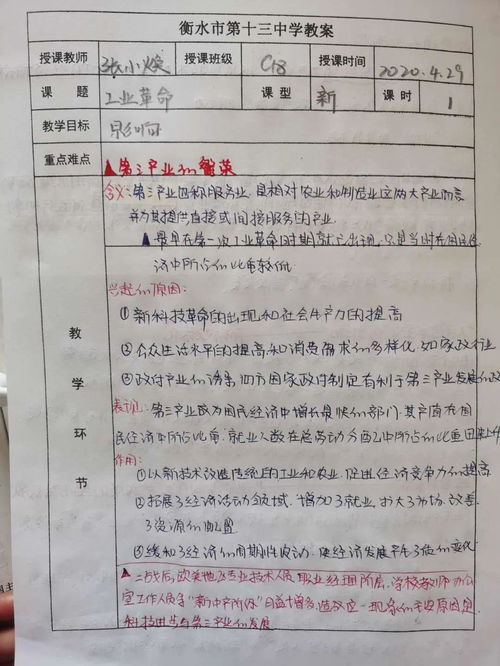 衡水市第十三中学教案
授课教师 张小焕 授课班级 C18 授课时间 2020.4.29
课题 工业革命 课型 新 课时 1
教学目标 影响
重点难点 ▲第三产业的繁荣
含义:第三产业也称服务业,是相对农业和制造业这两大产业而言
并为其提供直接或间接服务的产业
▲最早在第一次工业革命时期就已出现,只是当时在国民经
济中所占的比重较低
兴起的原因:
①新科技革命的出现和社会生产力的提高
②公众生活水平的提高和消费需求的多样化,如家政行业
③政府产业的诱导,西方国家政府制定有利于第三产业发展的政
教学环节
表现:第三产业成为国民经济中增长最快的部门,其产值在国
民经济中所占比重,就业人数在总劳动力中所占的比重
作用:
①以新技术改造传统的工业和农业,促进经济竞争力的提高
②拓展了经济活动领域,增加了就业,扩大了市场,改善
了资源的配置
③缓和了经济的周期性波动,使经济发展产生了质的变化
▲二战后,欧美地区专业技术人员,职业经理阶层,学校教师,办公
室工作人员等"新中产阶级"日益增多,造成这一现象的主要原因是
科技进步与第三产业的发展